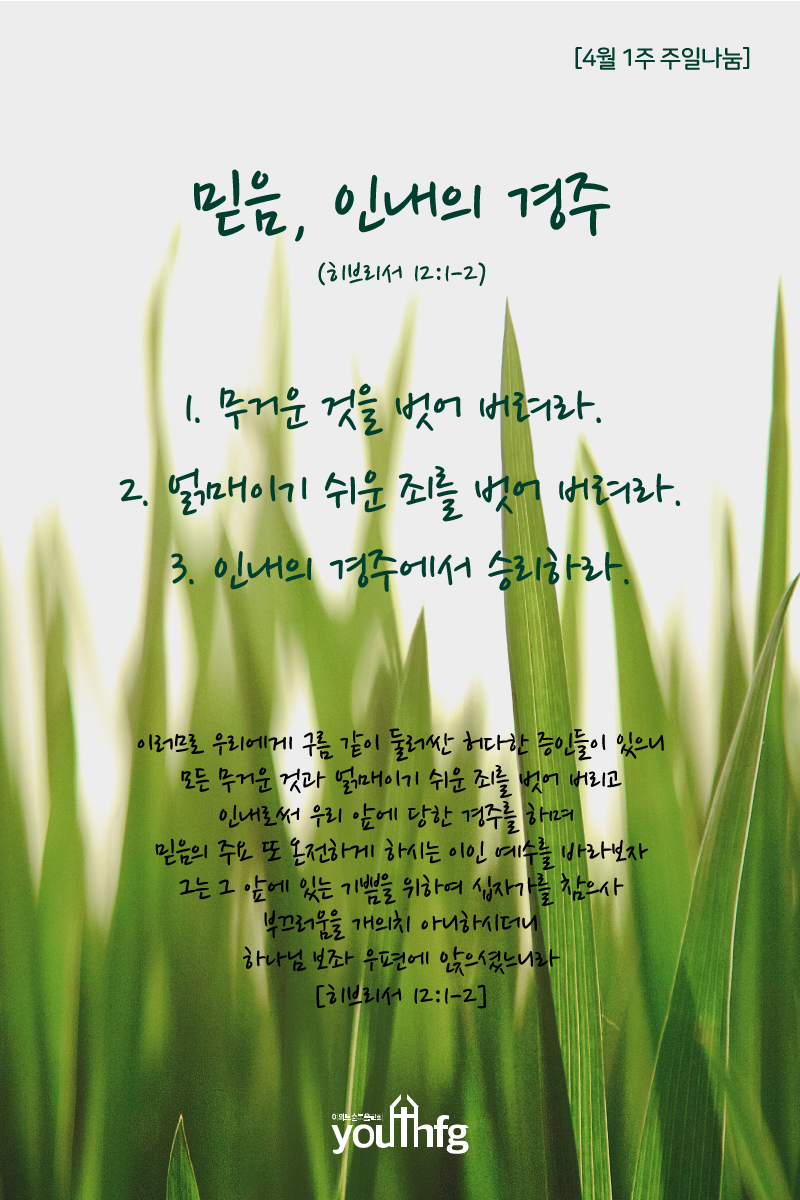 [4월 1주 주일나눔]
믿음, 인내의 경주
(히브리서 12:1-2)
1. 무거운 것을 벗어 버려라.
2. 얽매이기 쉬운 죄를 벗어 버려라.
3. 인내의 경주에서 승리하라.
이러므로 우리에게 구름 같이 둘러싼 허다한 증인들이 있으니
모든 무거운 것과 얽매이기 쉬운 죄를 벗어 버리고
인내로써 우리 앞에 당한 경주를 하며
믿음의 주요 또 온전하게 하시는 이인 예수를 바라보자
그는 그 앞에 있는 기쁨을 위하여 십자가를 참으사
부끄러움을 개의치 아니하시더니
하나님 보좌 우편에 앉으셨느니라
[히브리서 12:1-2]
youthfg